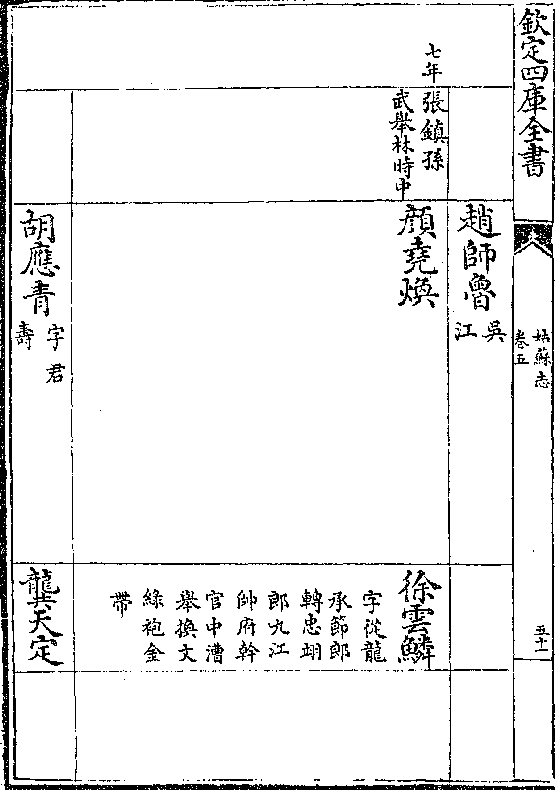 欽定四庫全書
姑蘇志
卷五
五十一
趙師魯
吳
江
七年
張鎮孫
武舉林時中
顔堯煥
徐雲鱗
字從龍
承節郎
轉忠翊
郎九江
帥府幹
官中漕
舉換文
綠袍金
帶
胡應青
字君
壽
龔天定